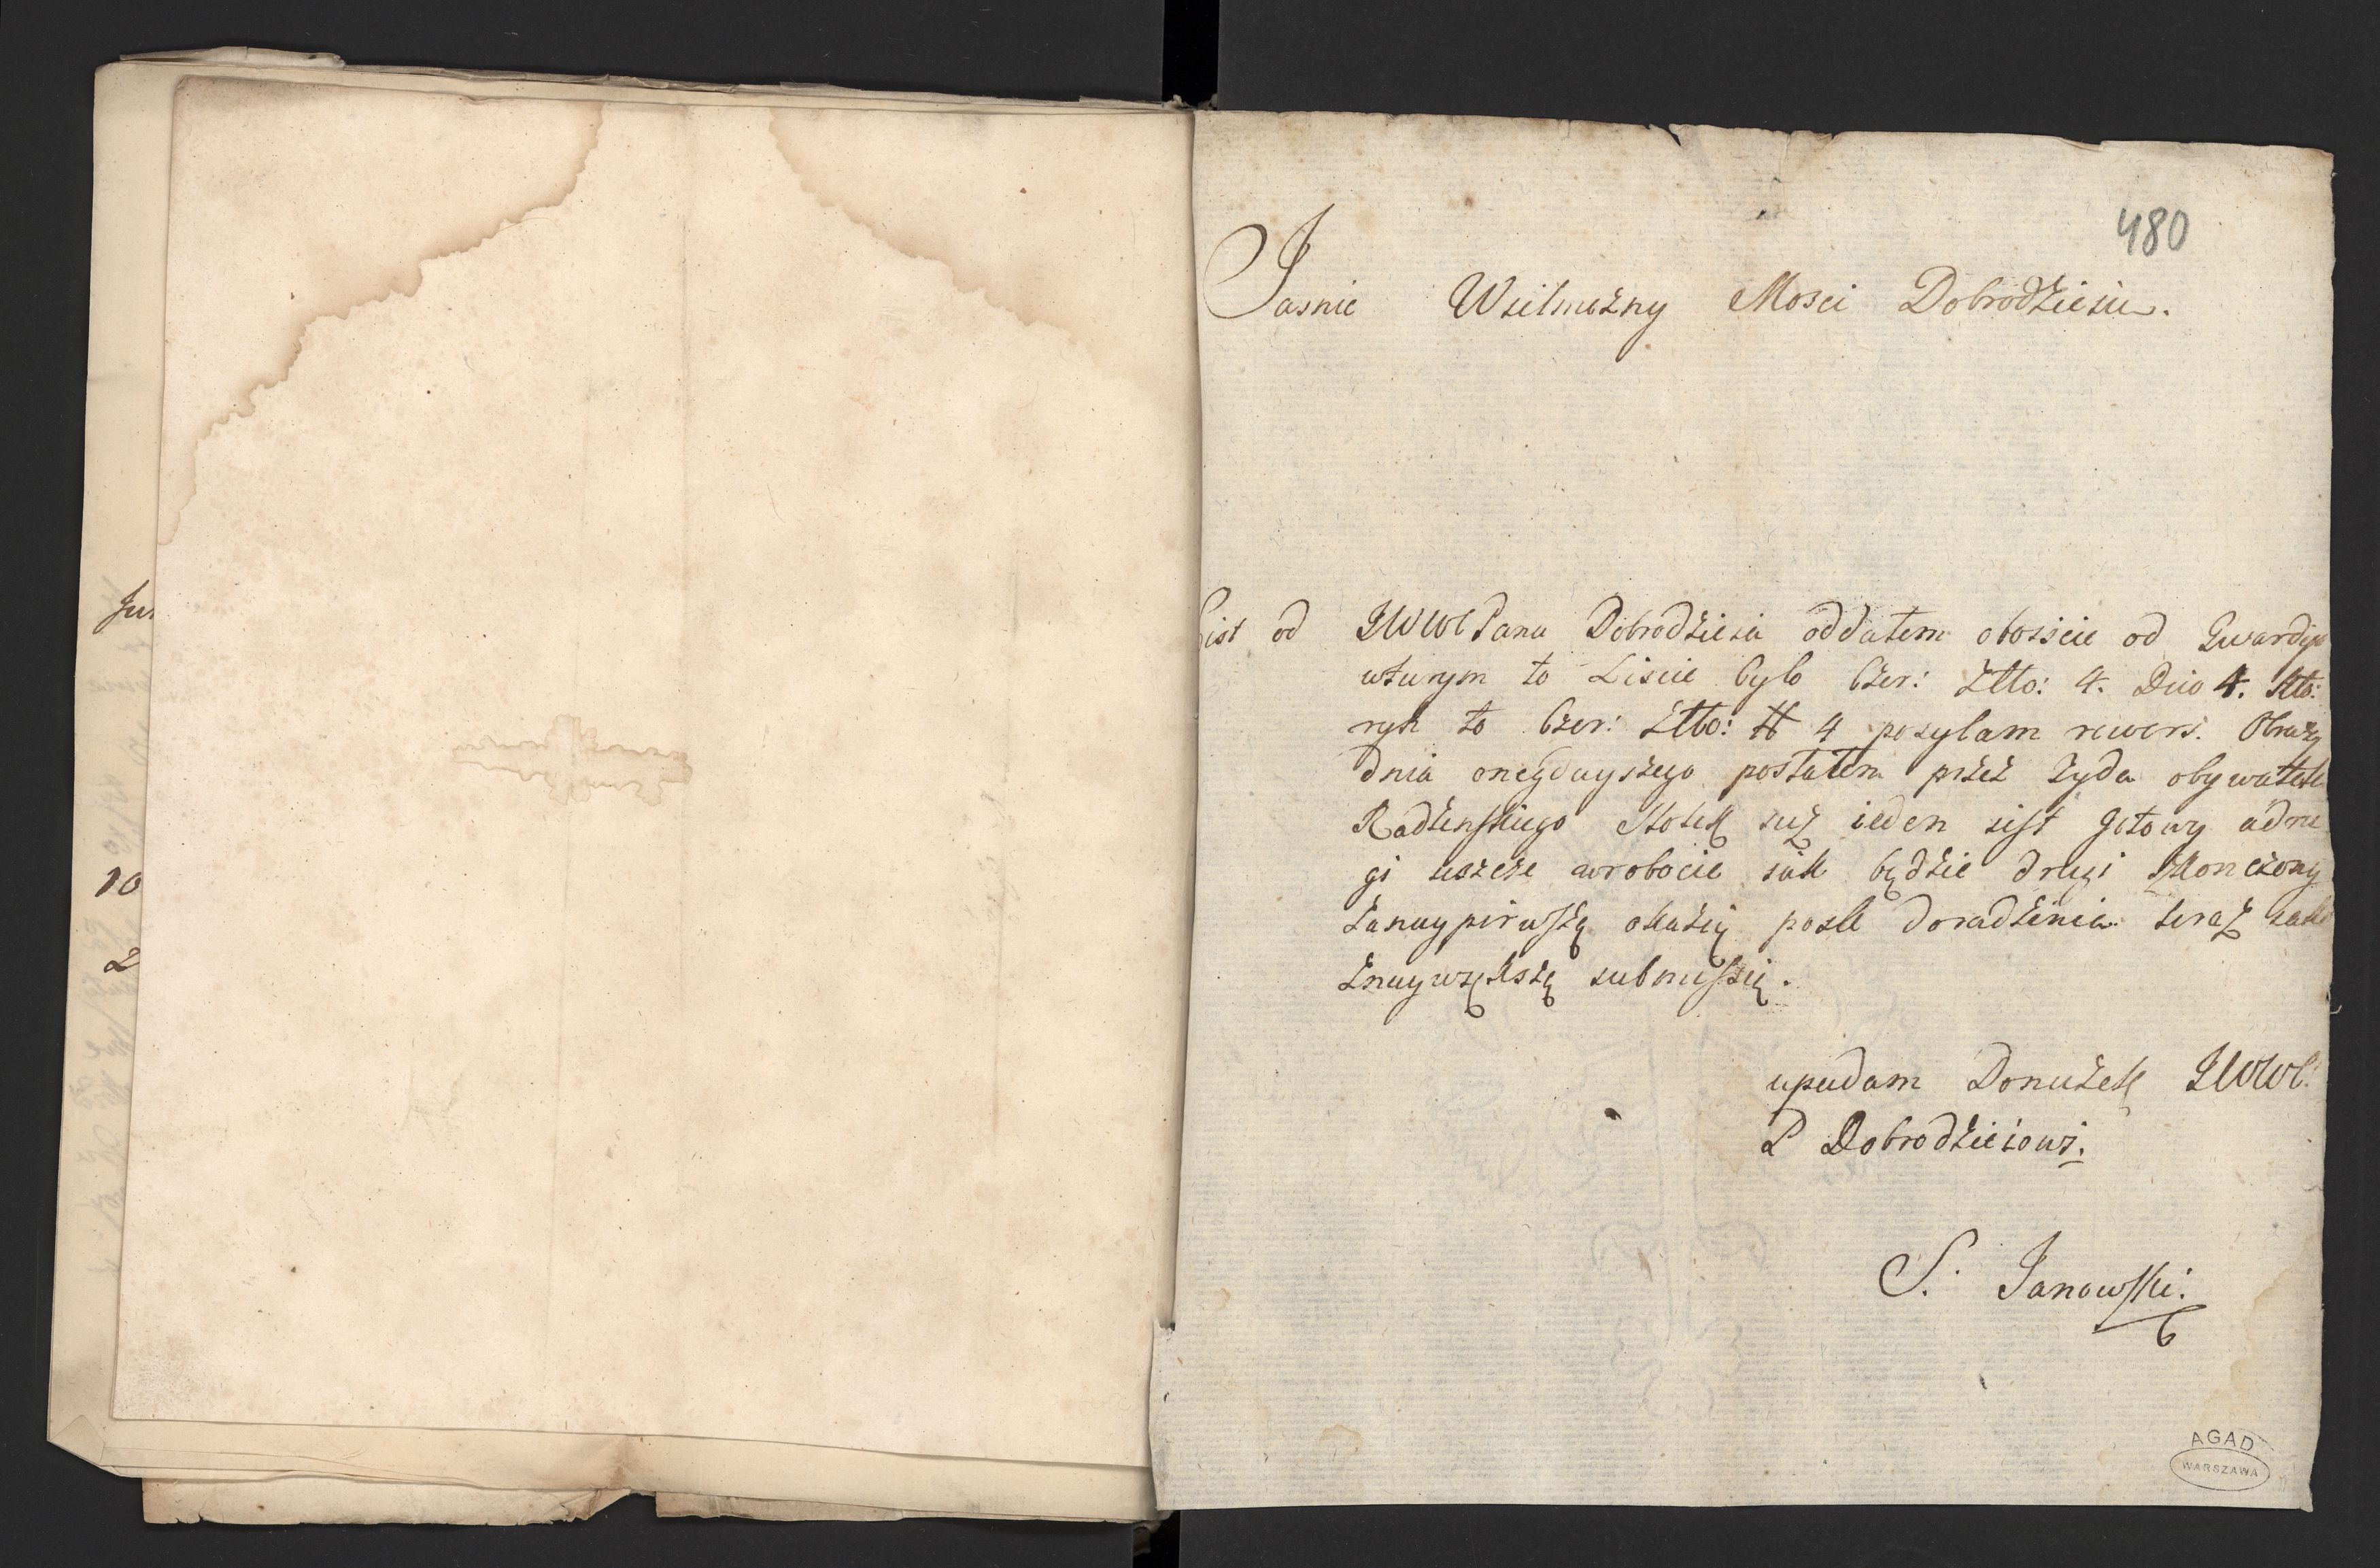 Jur
10
2
480
Jasnie Wielmożny Mosci Dobrodzieiu.
List od JWWPana Dobrodzieia oddałem obożcie od Gwardyi
wturym to Liscie było Czer: Złto: 4. Dnio 4. Kto:
rych to Czer: Złto: # 4 posylam rewers. Obrazy
dnia onegdayszego posłałem przez Zyda obywatela
Radzenskiego Stołek iuż ieden iest Gotowy adru
gi ieszcze wrobocie iak będzie drugi Skonczony
Zanaypirwszą okazią posle doradzenia teraz zaś
Znaywzększą submissią.
upadam Donużek JWWP
P Dobrodzieiowi.
S. Janowski.
AGAD
WARSZAWA